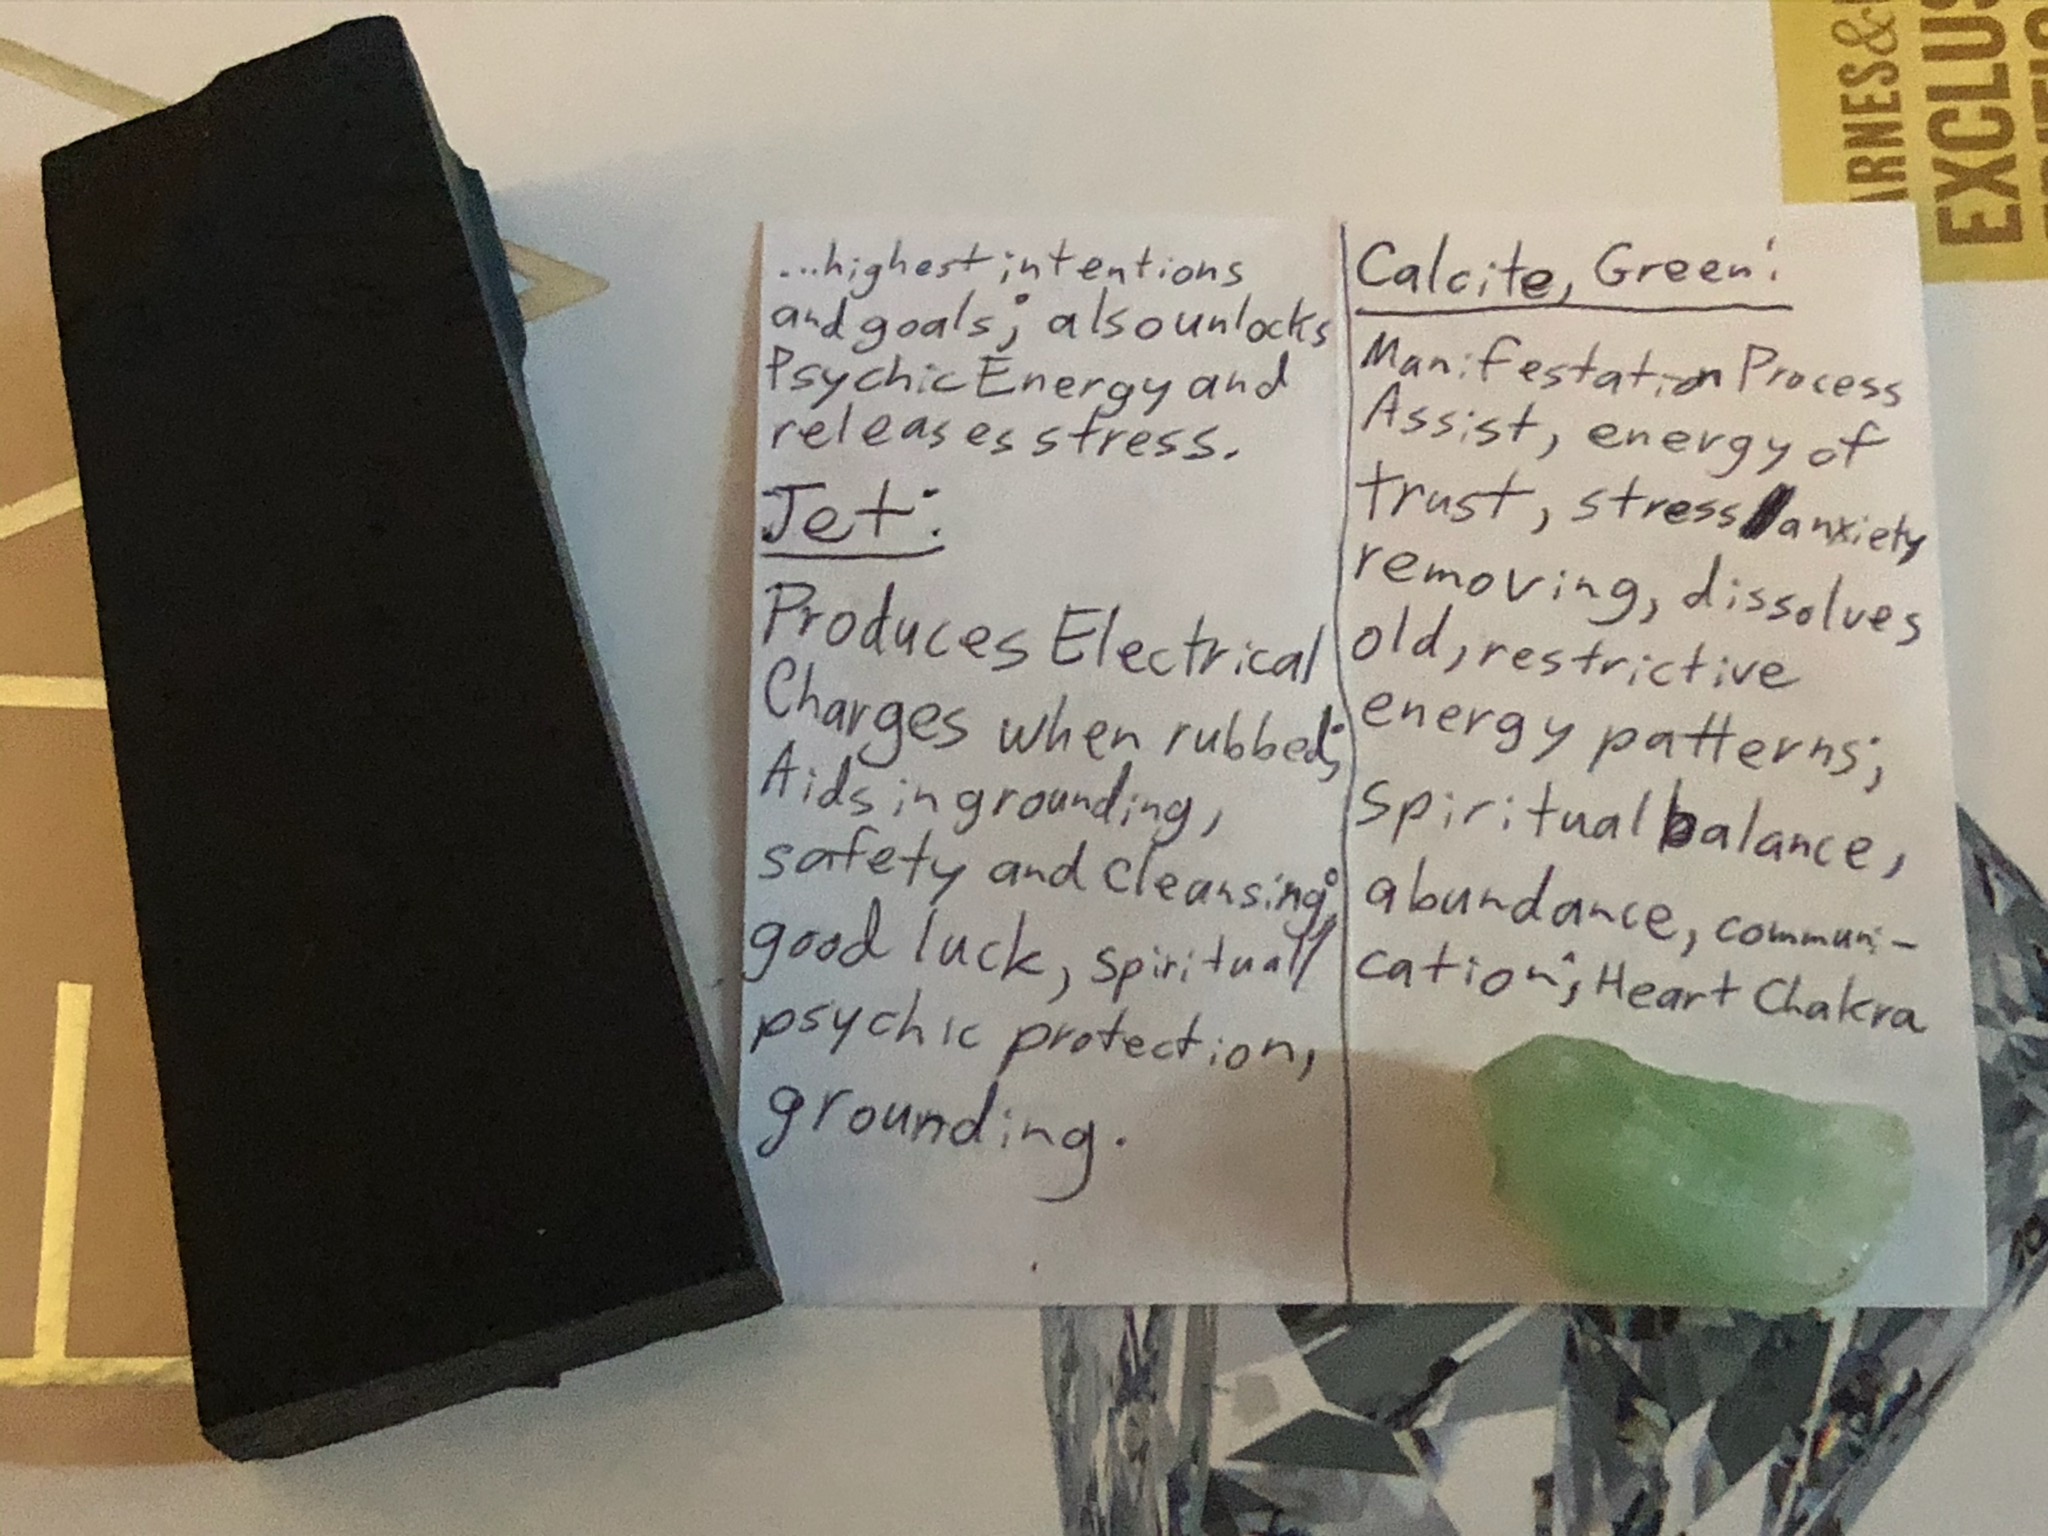 ...highest intentions
and goals; also unlocks
Psychic Energy and
releases stress.
Jet:
Produces Electrical
Charges when rubbed;
Aids in grounding,
safety and cleansing;
good luck, spiritual/
psychic protection,
grounding.
Calcite, Green:
Manifestation Process
Assist, energy of
trust, stress/anxiety
removing, dissolves
old, restrictive
energy patterns;
spiritual balance,
abundance, communi-
cation; Heart Chakra
EXCLUS